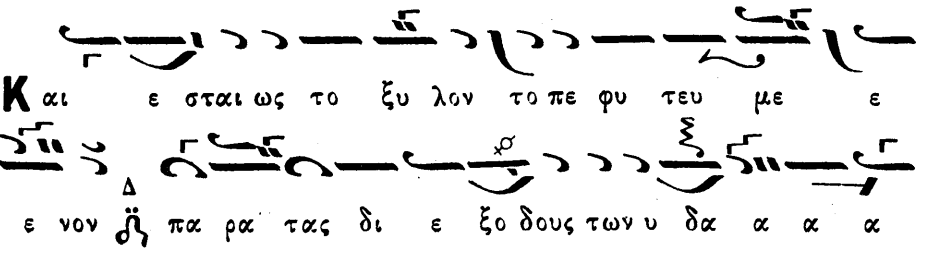 Και ε σται ως το ξυ λον το πε φυ τευ με ε
ε νον Δ πα ρα τας δι ε ξο δους των υ δα α α α